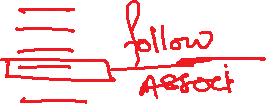 follow
Associ